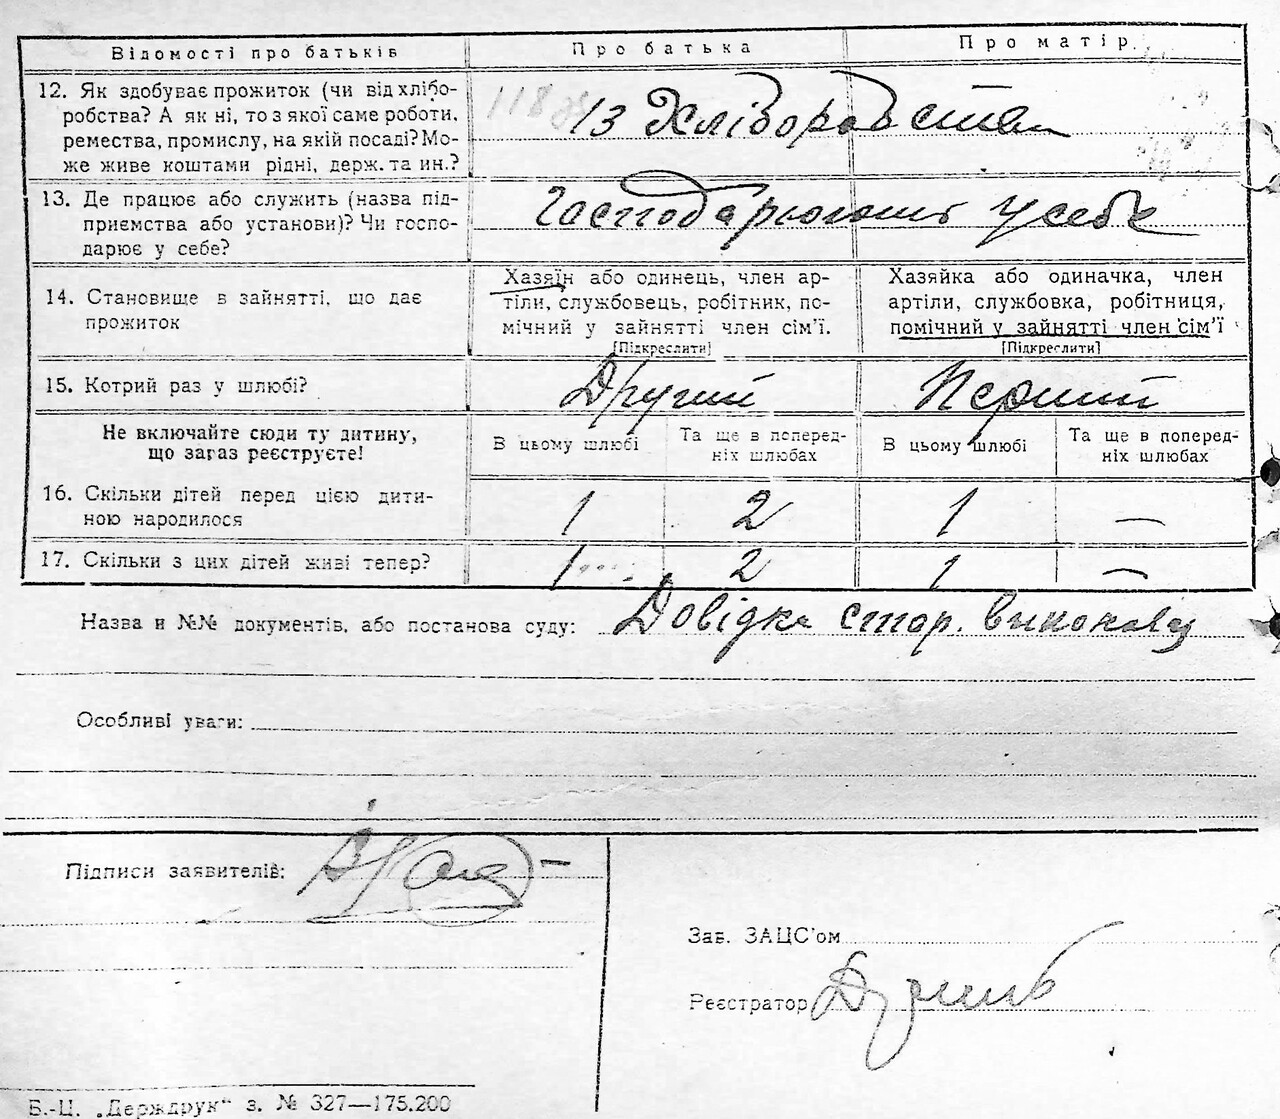 Відомості про батьків Про батька Про матір
12. Як здобуває прожиток (чи від хлібо-
робства? А як ні, то з якої саме роботи,
ремества, промислу, на якій посаді? Мо-
же живе коштами рідні, держ. та ин.?
118 Із Хліборобства
13. Де працює або служить (назва під-
приємства або установи)? Чи госпо-
дарює у себе?
Господарюють у себе
14. Становище в зайнятті, що дає
прожиток
Хазяїн або одинець, член ар-
тіли, службовець, робітник, по-
мічний у зайнятті член сім'ї.
[Підкреслити]
Хазяйка або одиначка, член
артіли, службовка, робітниця,
помічний у зайнятті член сім'ї
[Підкреслити]
15. Котрий раз у шлюбі? Другий Перший
Не включайте сюди ту дитину,
що загаз реєструєте!
В цьому шлюбі
Та ще в поперед-
ніх шлюбах
В цьому шлюбі
Та ще в поперед-
ніх шлюбах
16. Скільки дітей перед цією дити-
ною народилося
1 2 1 —
17. Скільки з цих дітей живі тепер? 1 2 1 —
Назва и №№ документів, або постанова суду: Довідка стор. виконавц
Особливі уваги:
Підписи заявителів:
Зав. ЗАЦС'ом
Реєстратор
Б.-Ц. „Держдрук“ з. № 327—175.200